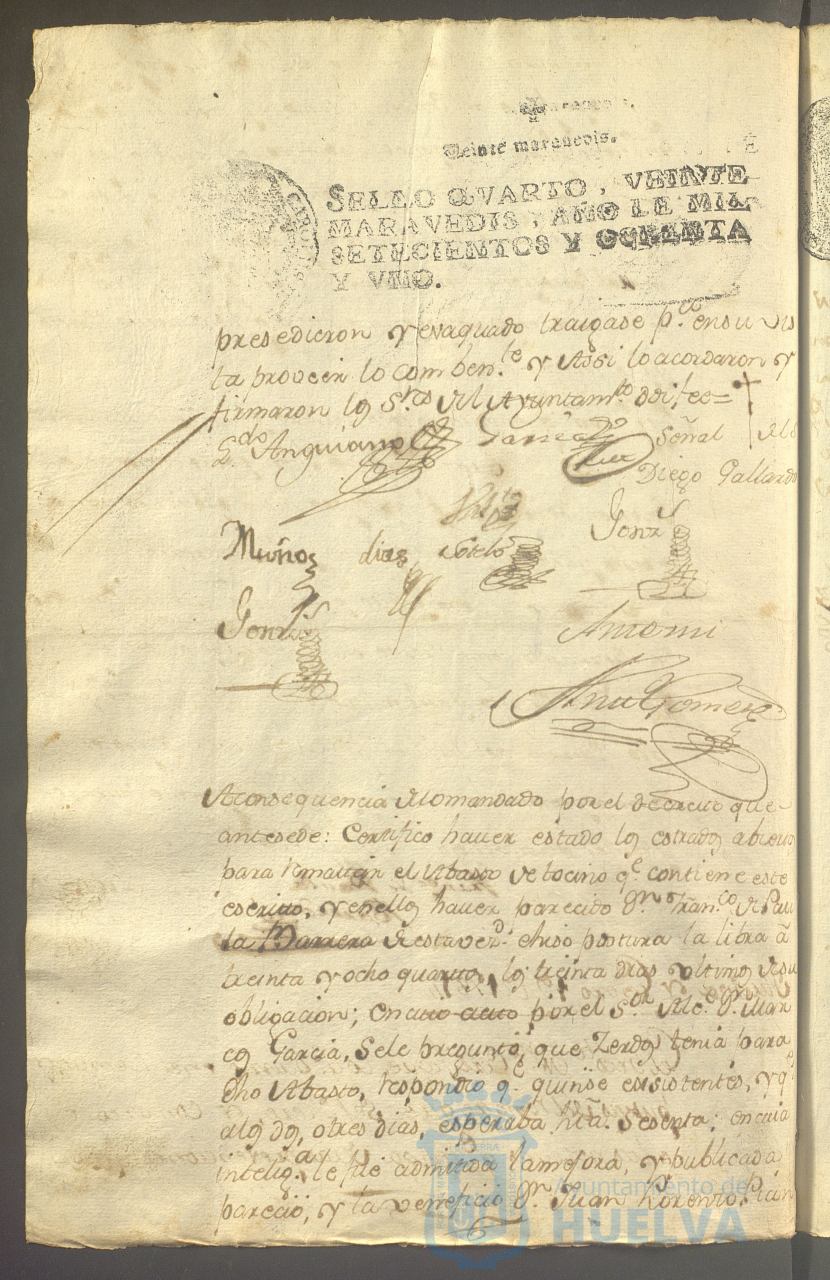 Veinte maravedis.
SELLO QVARTO, VEINTE
MARAVEDIS, AÑO DE MIL
SETECIENTOS Y OCHENTA
Y VNO.
presedieron y evaquado traigase p.co en su vis
ta proveer lo comben.te y Assi lo acordaron y
firmaron los S.res del Ayuntam.to doi fee=
L.do Anguiano Garzia Señal del
Diego Gallardo
Muños dias Sotelo Gonz.s
Gonz.s
Antemi
Gomez
A consequencia de lo mandado por el decreto que
antesede: Certifico haver estado los estrados abiertos
para rematar el Abasto de tocino q.e contiene este
escrito, y en ellos haver parecido D.n Fran.co de Pau
la Barrera de esta vez.d e hiso postura la libra â
treinta y ocho quartos los treinta dias ultimos de su
obligacion; por el S.or Alc.e D.n Mar
cos Garcia, Se le preguntó, que Zerdos tenia para
dho Abasto, respondio q.e quinse exsistentes, y q.e
a los dos, o tres dias, esperaba h.ta sesenta; en cuia
intelig.a le fue admitida la mejora, y publicada
parecio, y la veneficio D.n Juan Lorenzo
Ayuntamiento de
HUELVA